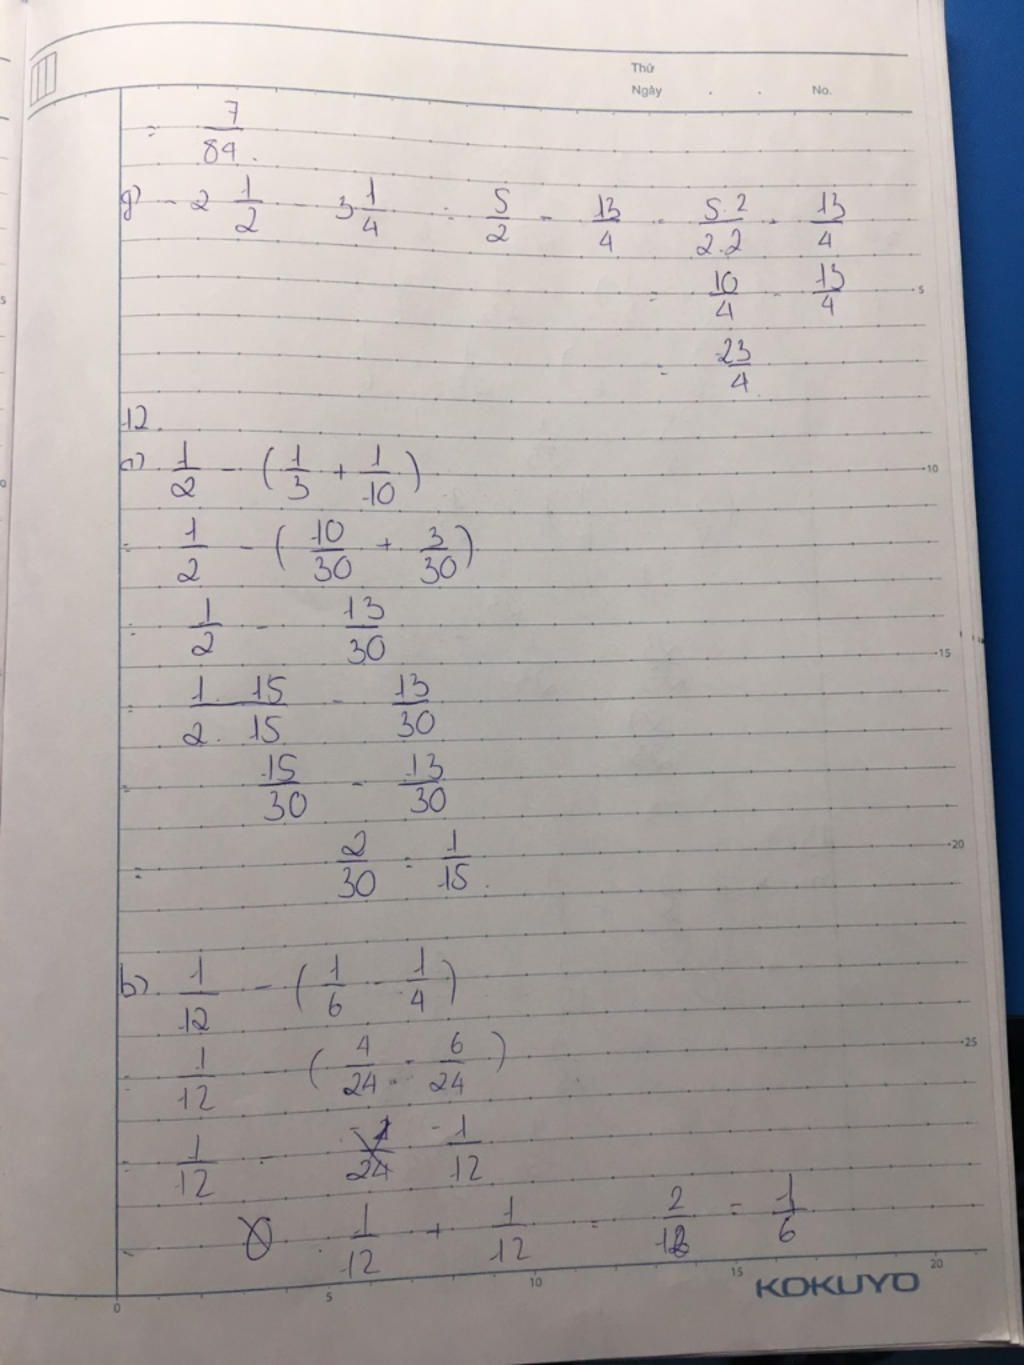 Thứ
Ngày . . No.
= 7/84.
g) - 2 1/2 - 3 1/4 = 5/2 - 13/4 = 5.2/2.2 - 13/4
= 10/4 - 13/4
= -23/4
12.
a) 1/2 - (1/3 + 1/10)
= 1/2 - (10/30 + 3/30)
= 1/2 - 13/30
= 1. 15/2. 15 - 13/30
= 15/30 - 13/30
= 2/30 = 1/15.
b) 1/12 - (1/6 - 1/4)
= 1/12 - (4/24 - 6/24)
= 1/12 - -1/12
= 1/12 + 1/12 = 2/12 = 1/6
KOKUYO